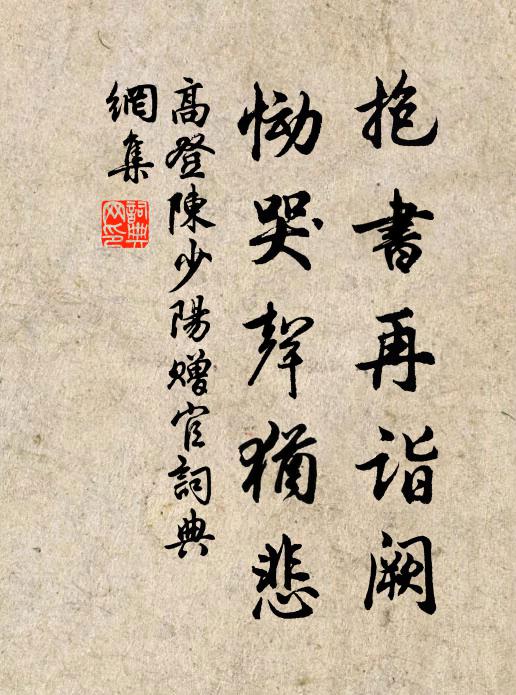 抱書再詣闕
慟哭聲猶悲
高登陳少陽贈官詞典
網集
詞典
网印